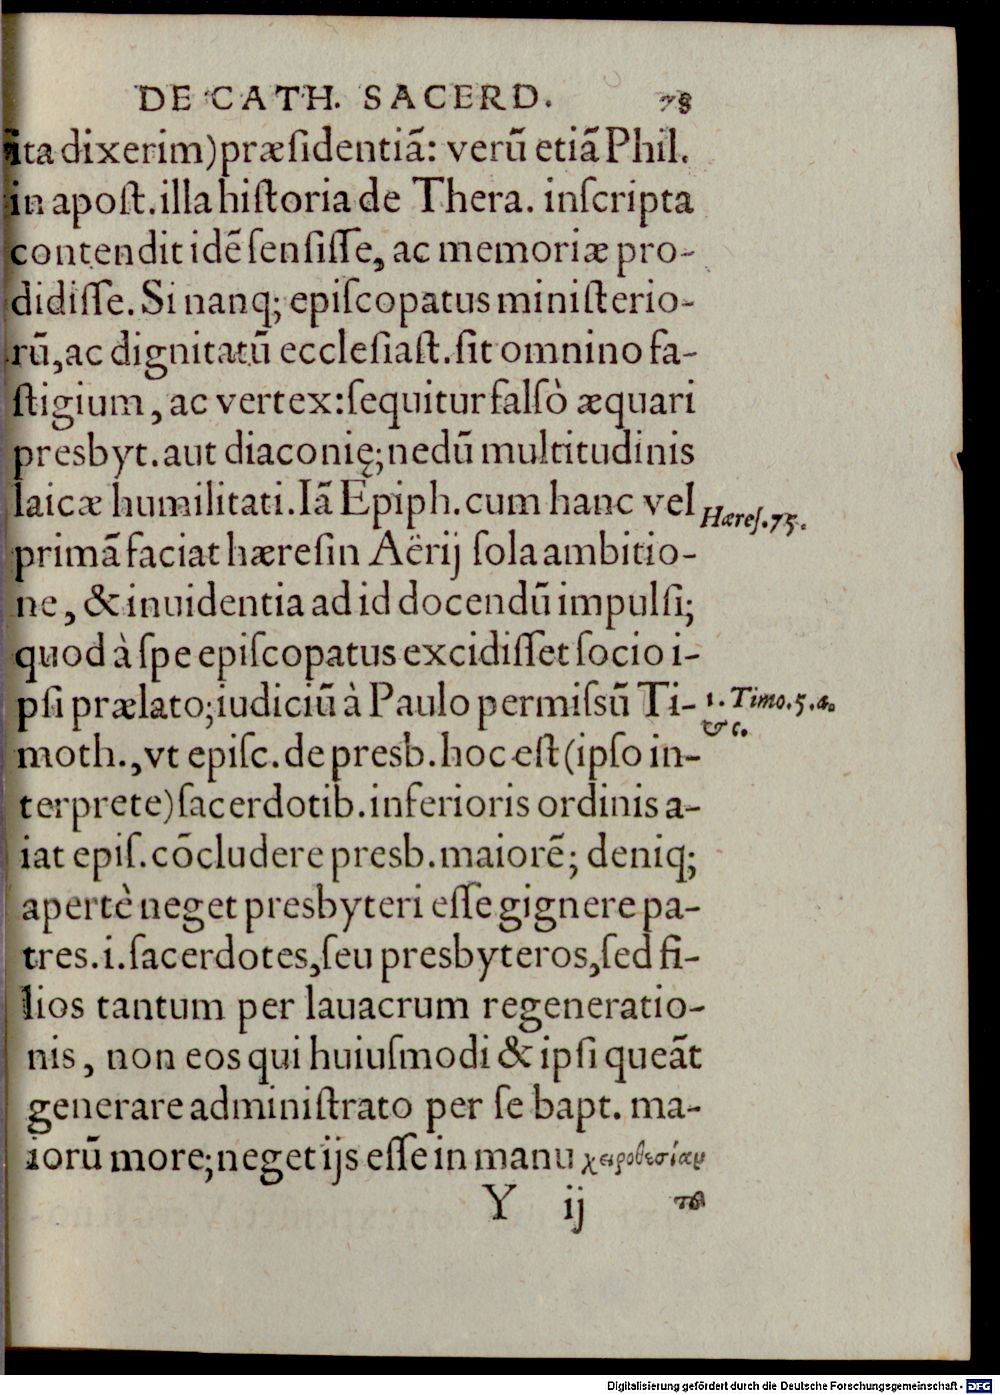 DE CATH. SACERD. 78
ita dixerim) præſidentiã: verũ etiã Phil.
in apoſt. illa hiſtoria de Thera. inſcripta
contendit idẽ ſenſiſſe, ac memoriæ pro-
didiſſe. Si nanq; epiſcopatus miniſterio-
rũ, ac dignitatũ eccleſiaſt. ſit omnino fa-
ſtigium, ac vertex: ſequitur falſò æquari
presbyt. aut diaconię; nedũ multitudinis
laicæ humilitati. Iã Epiph. cum hanc vel
Hæreſ. 75.
primã faciat hæreſin Aërij ſola ambitio-
ne, & inuidentia ad id docendũ impulſi;
quod à ſpe epiſcopatus excidiſſet ſocio i-
pſi prælato; iudiciũ à Paulo permiſsũ Ti-
1. Timo. 5. a.
& c.
moth., vt epiſc. de presb. hoc eſt (ipſo in-
terprete) ſacerdotib. inferioris ordinis a-
iat epiſ. cõcludere presb. maiorẽ; deniq;
apertè neget presbyteri eſſe gignere pa-
tres. i. ſacerdotes, ſeu presbyteros, ſed fi-
lios tantum per lauacrum regeneratio-
nis, non eos qui huiuſmodi & ipſi queãt
generare adminiſtrato per ſe bapt. ma-
iorũ more; neget ijs eſſe in manu χειροθεσίαν
Y ij
Digitalisierung gefördert durch die Deutsche Forschungsgemeinschaft - DFG